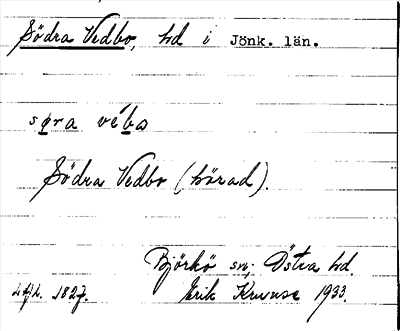 Södra Vedbo, hd i Jönk. län.
søra véba
Södra Vedbo (härad).
Björkö sn; Östra hd.
1827. Erik Kruuse 1933.